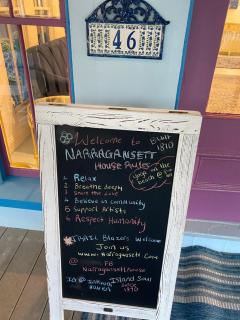 46
Welcome to
Built
1870
NARRAGANSETT
House Rules
Yoga on the
beach @
1 Relax
2 Breathe deeply
3 Share the Love
4 Believe in Community
5 Support Artists
6 Respect Humanity
TRAIL Blazers Welcome
Join us
www.Narragansett.Love
@ FB
Narragansett House
IG @
Island Soul
since
1870